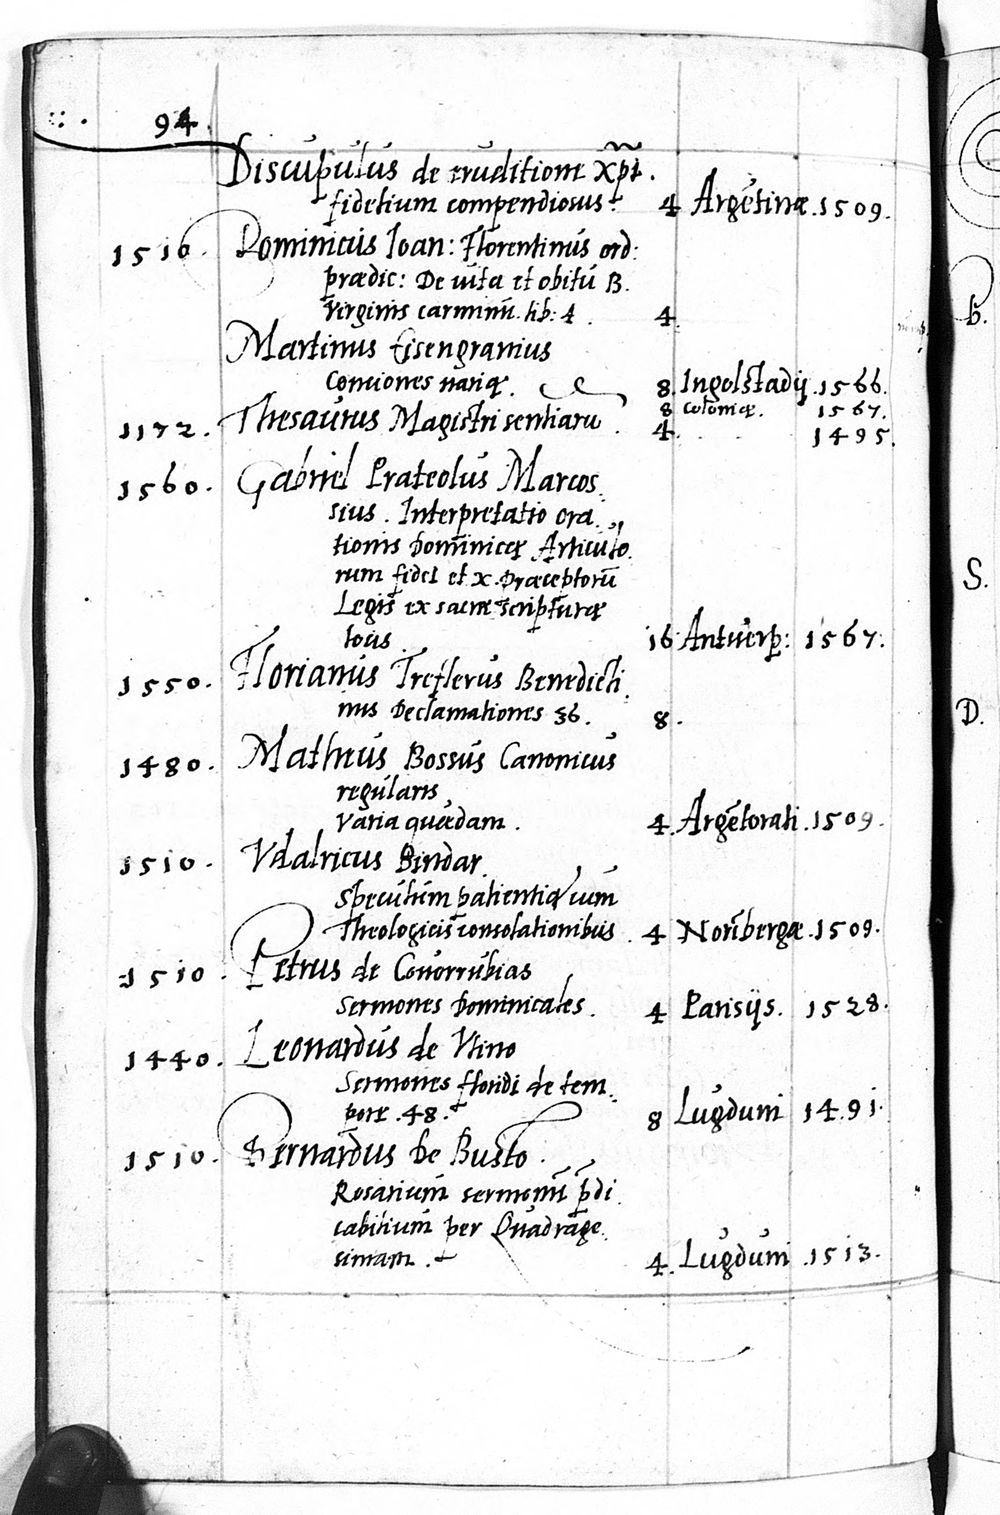 94.
Discupulus de eruditione Xp̃t.
fidelium compendiosus. 4 Argẽtinæ. 1509.
1510. Dominicus Ioan: Florentinus ord:
prædic: De uita et obitu B.
Virginis carminũ. lib: 4. 4.
Martinus Eisengranius
Conciones uariæ. 8. Ingolstadij. 1566.
8 coloniæ. 1567.
1172. Thesaurus Magistri sentiaru. 4. 1495.
1560. Gabriel Prateolus Marcos
sius. Interpretatio ora.
tionis Dominicæ Articulo.
rum fidei et x. Præceptorũ
Legis ex sacræ scripturæ
locis. 16 Antuerp: 1567.
1550. Florianus Treflerus Benedicti.
nus Declamationes 36. 8.
1480. Matheus Bossus Canonicus
regularis
Varia quædam. 4. Argẽtorati. 1509.
1510. Vdalricus Bindar.
Speculum patientiæ cum
Theologicis consolationibus. 4 Norĩbergæ. 1509.
1510. Petrus de Couorrubias
Sermones Dominicales. 4 Parisijs. 1528.
1440. Leonardus de Vtino
Sermones floridi de tem.
pore. 48. 8 Lugduni 1491.
1510. Bernardus de Busto.
Rosarium sermonũ p̃di
cabilium per Quadrage.
simam. 4. Lugduni. 1513.
b.
S.
D.